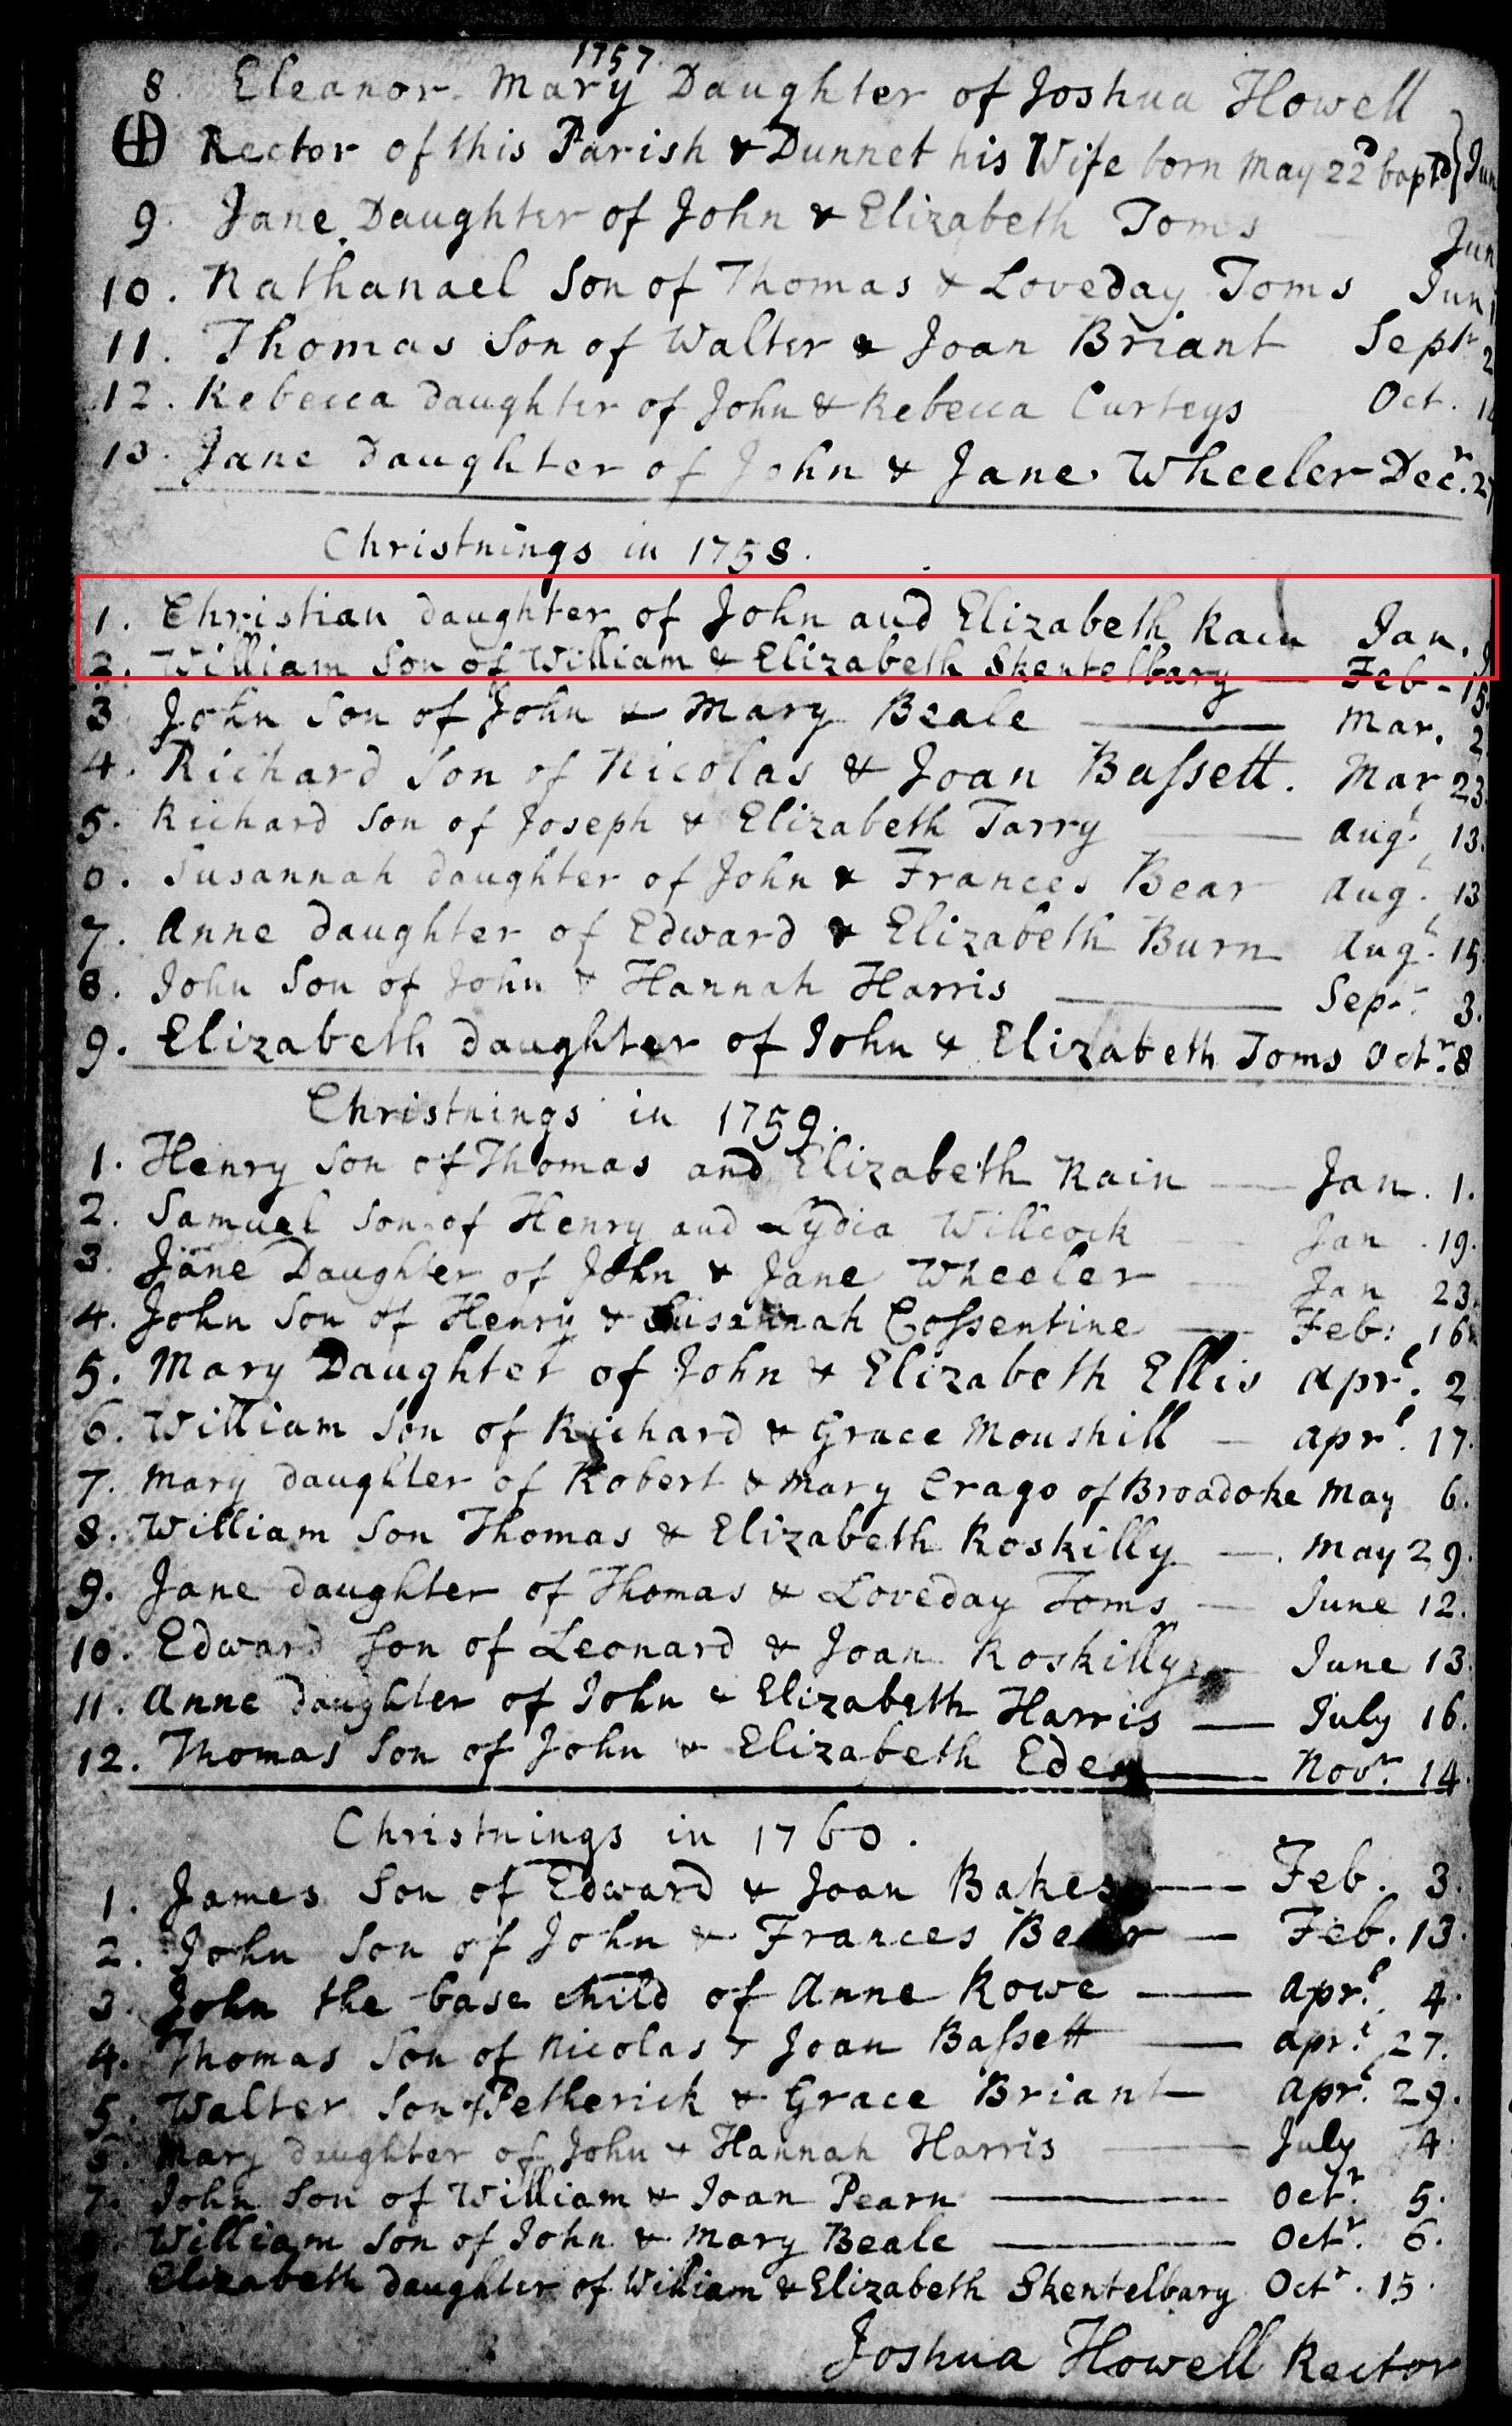 1757.
8. Eleanor Mary Daughter of Joshua Howell
Rector of this Parish & Dunnet his Wife born May 22d baptd Jun
9. Jane Daughter of John & Elizabeth Toms Jun
10. Nathanael Son of Thomas & Loveday Toms Jun
11. Thomas Son of Walter & Joan Briant Septr 2
12. Rebecca daughter of John & Rebecca Curteys Oct. 1
13. Jane daughter of John & Jane Wheeler Decr. 2
Christnings in 1758.
1. Christian daughter of John and Elizabeth Rain Jan.
2. William Son of William & Elizabeth Skentelbary — Feb - 15
3 John Son of John & Mary Beale — Mar. 2
4. Richard Son of Nicolas & Joan Baſsett. Mar 23.
5. Richard Son of Joseph & Elizabeth Tarry — Augt. 13.
6. Susannah daughter of John & Frances Bear Augt. 13
7. Anne daughter of Edward & Elizabeth Burn Augt. 15
8. John Son of John & Hannah Harris — Sept. 3.
9. Elizabeth daughter of John & Elizabeth Toms Octr. 8
Christnings in 1759.
1. Henry Son of Thomas and Elizabeth Rain — Jan. 1.
2. Samuel Son of Henry and Lydia Willcock Jan. 19.
3. Jane Daughter of John & Jane Wheeler — Jan 23.
4. John Son of Henry & Susannah Coſsentine — Feb: 16
5. Mary Daughter of John & Elizabeth Ellis Aprl. 2
6. William Son of Richard & Grace Moushill — Aprl. 17.
7. Mary daughter of Robert & Mary Crago of Broadoke May 6.
8. William Son Thomas & Elizabeth Roskilly —. May 29.
9. Jane daughter of Thomas & Loveday Toms — June 12.
10. Edward Son of Leonard & Joan Roskilly — June 13.
11. Anne daughter of John & Elizabeth Harris — July 16.
12. Thomas Son of John & Elizabeth Eden — Novr. 14.
Christnings in 1760.
1. James Son of Edward & Joan Bakes — Feb. 3.
2. John Son of John & Frances Bear — Feb. 13.
3. John the base child of Anne Rowe — Aprl. 4.
4. Thomas Son of Nicolas & Joan Baſsett — Aprl. 27.
5. Walter Son of Petherick & Grace Briant — Aprl. 29.
6. Mary daughter of John & Hannah Harris — July 4.
7. John Son of William & Joan Pearn — Octr. 5.
William Son of John & Mary Beale — Octr. 6.
9. Elizabeth daughter of William & Elizabeth Skentelbary Octr. 15.
Joshua Howell Rector